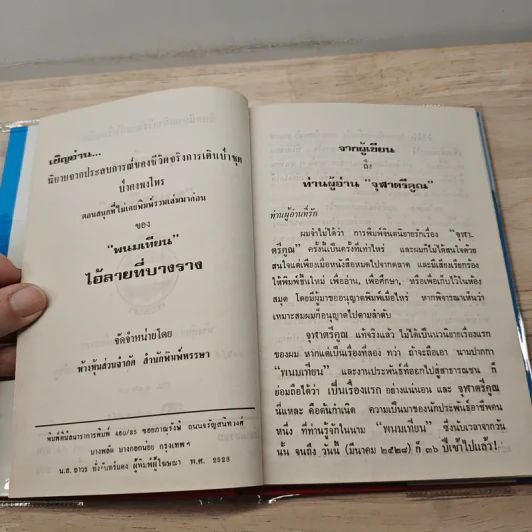 เชิญอ่าน...
นิยายจากประสบการณ์ของชีวิตจริงการเดินป่าชุด
ป่าดงพงไพร
ตอนสนุกที่ไม่เคยพิมพ์รวมเล่มมาก่อน
ของ
"พนมเทียน"
ไอ้ลายที่บางราง
จัดจำหน่ายโดย
ห้างหุ้นส่วนจำกัด สำนักพิมพ์พรรษา
พิมพ์ที่มิตรนราการพิมพ์ 460/85 ซอยภาณุรังษี ถนนจรัญสนิทวงศ์
บางพลัด บางกอกน้อย กรุงเทพฯ
น.ส. ถาวร ผู้พิมพ์ผู้โฆษณา พ.ศ. 2528
จากผู้เขียน
ถึง
ท่านผู้อ่าน "จุฬาตรีคูณ"
ท่านผู้อ่านที่รัก
ผมจำไม่ได้ว่า การพิมพ์จินตนิยายรักเรื่อง "จุฬา-
ตรีคูณ" ครั้งนี้เป็นครั้งที่เท่าไหร่ และผมก็ไม่ได้สนใจด้วย
สนใจแต่เพียงเมื่อหนังสือหมดไปจากตลาด และมีเสียงเรียกร้อง
ให้พิมพ์ขึ้นใหม่ เพื่ออ่าน, เพื่อศึกษา, หรือเพื่อเก็บไว้ในห้อง
สมุด โดยมีผู้มาขออนุญาตพิมพ์เมื่อไหร่ หากพิจารณาเห็นว่า
เหมาะสมผมก็อนุญาตไปตามลำดับ
จุฬาตรีคูณ แท้จริงแล้ว ไม่ได้เป็นนวนิยายเรื่องแรก
ของผม หากแต่เป็นเรื่องที่สอง ทว่า ถ้าจะถือเอา นามปากกา
"พนมเทียน" และงานประพันธ์ที่ออกไปสู่สาธารณชน ก็
ย่อมถือได้ว่า เป็นเรื่องแรก อย่างแน่นอน และ จุฬาตรีคูณ
นี่แหละ คือต้นกำเนิด ความเป็นมาของนักประพันธ์อาชีพคน
หนึ่ง ที่ท่านรู้จักในนาม "พนมเทียน" ซึ่งนับเวลาจากวัน
นั้น จนถึง วันนี้ (มีนาคม ๒๕๒๘) ก็ ๓๖ ปีเข้าไปแล้ว!